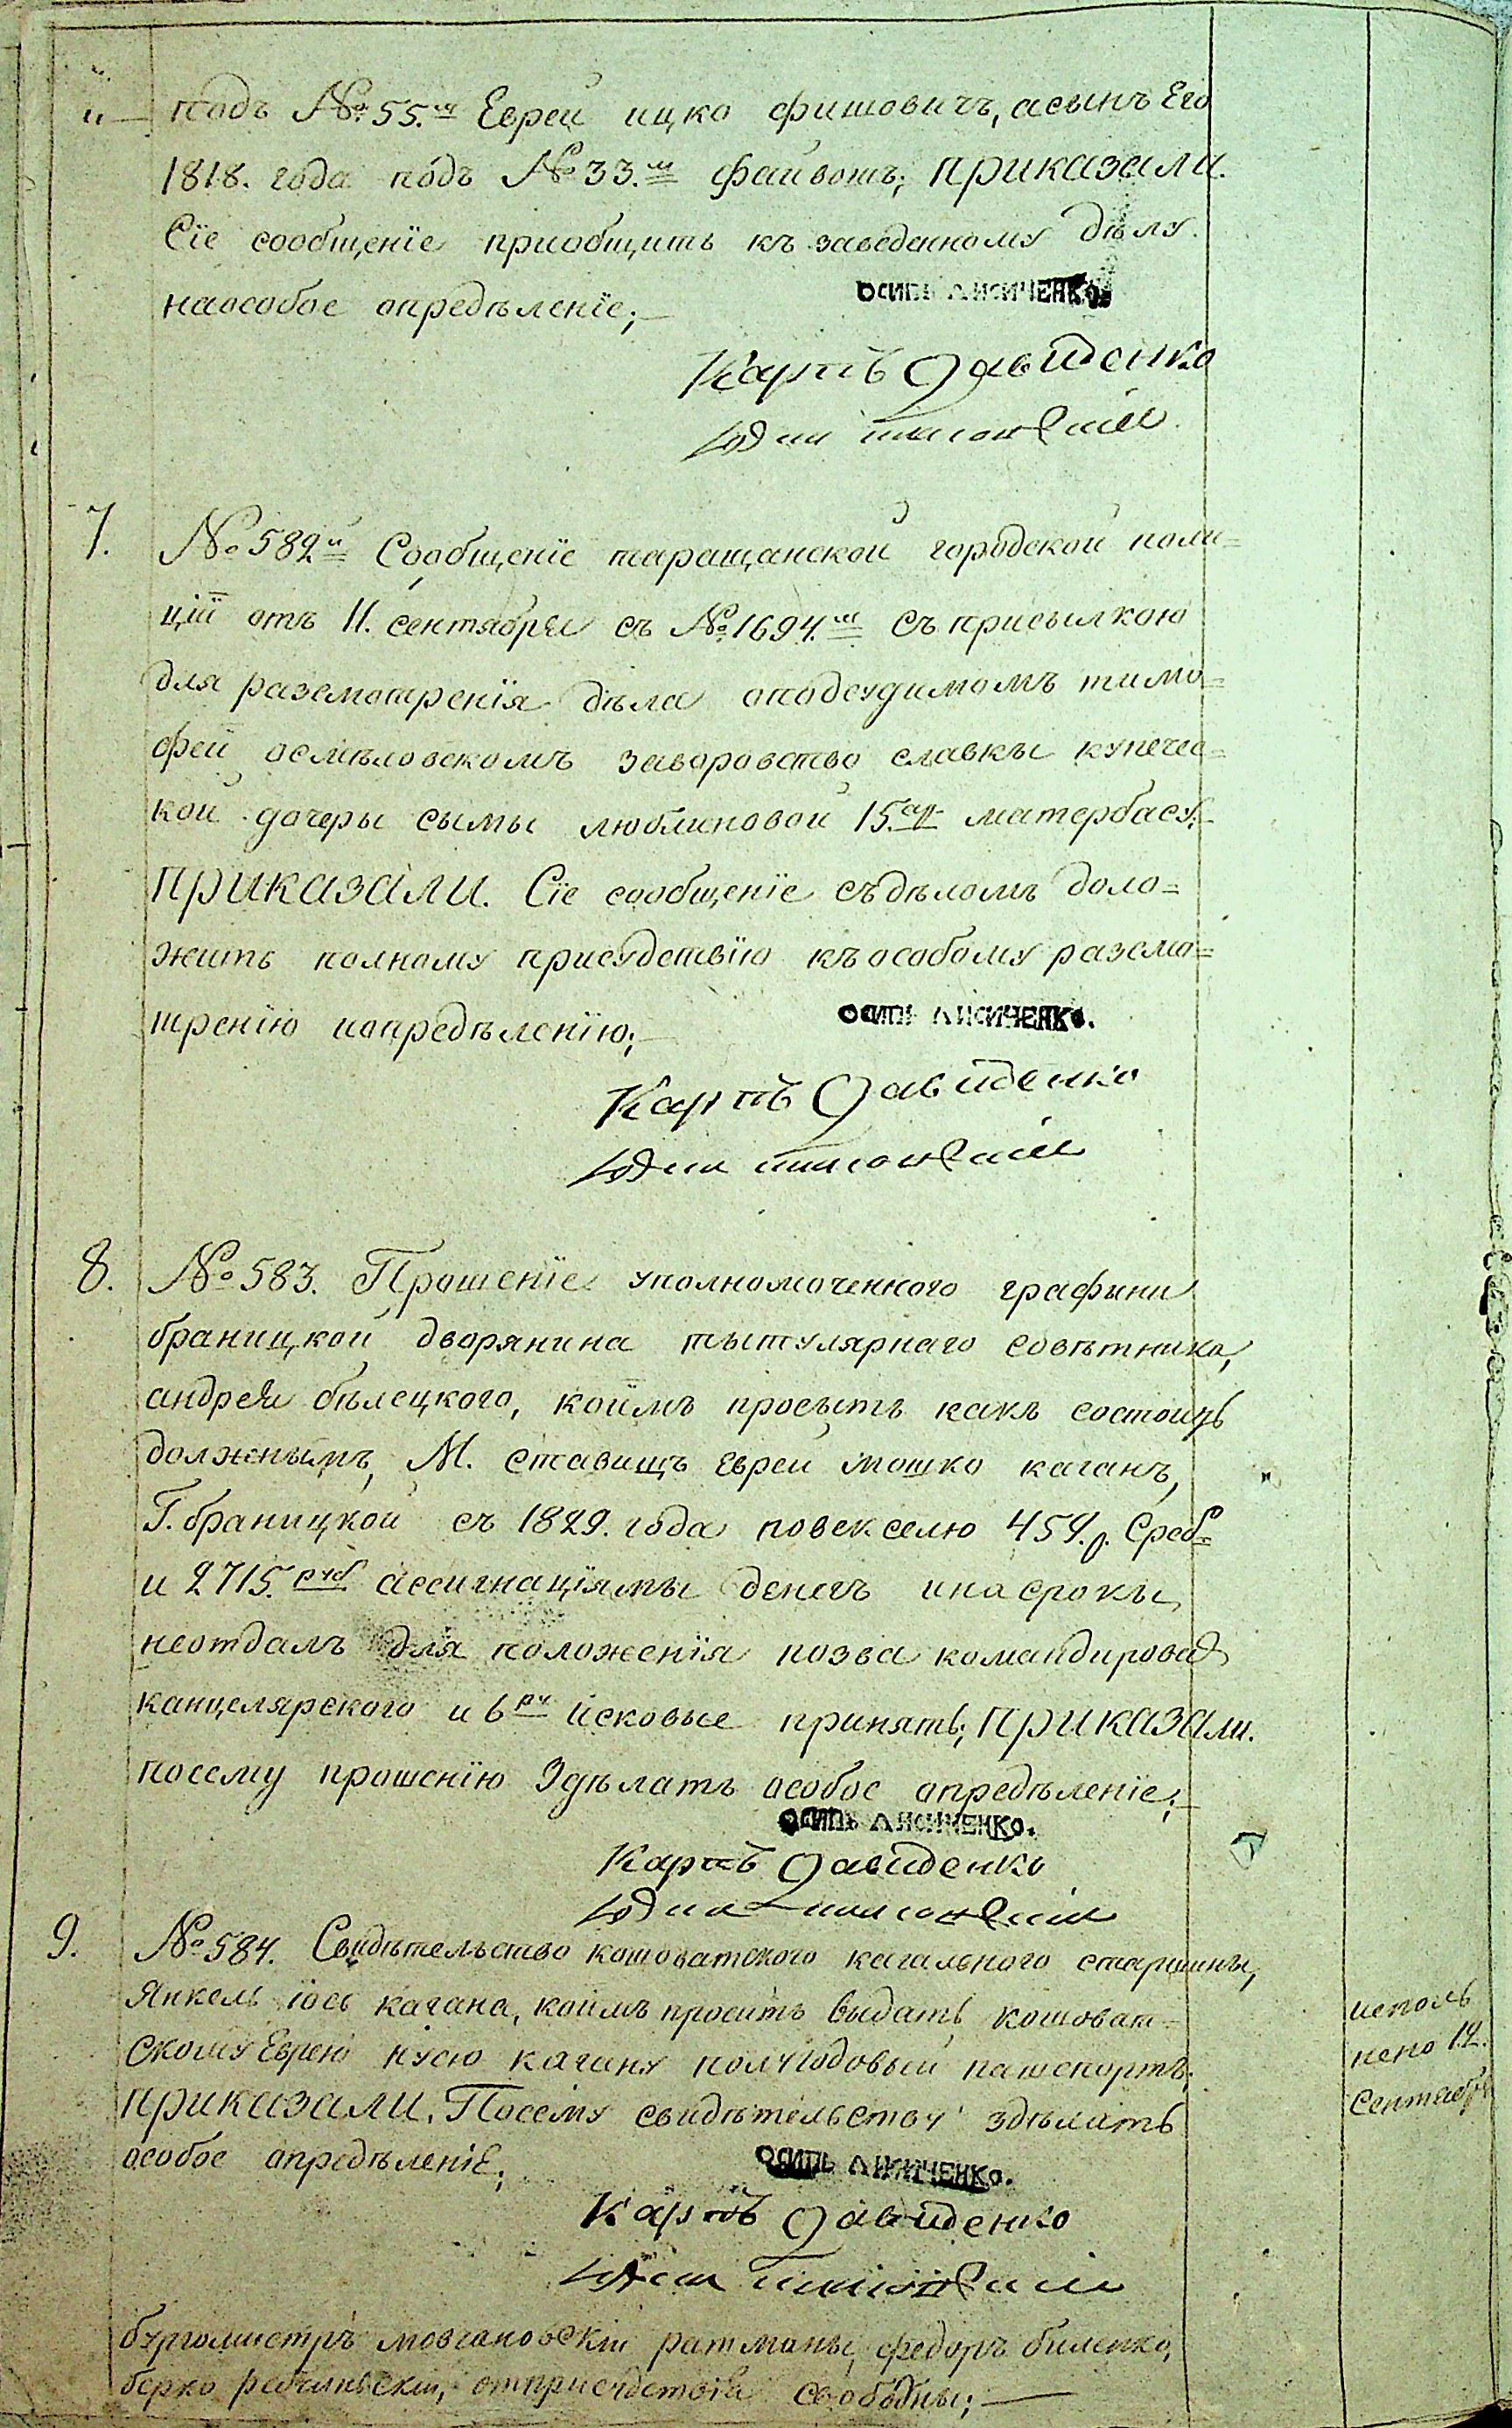 подъ №. 55.м Еврей ицко фишовичъ, асынъ Его
1818. года подъ № 33.м файвошъ; приказали.
Сіе сообщеніе приобщить къ заведенному дѣлу
наособое опредѣленіе;
ОСИПЪ ЛИСИЧЕНКО.
Карпъ Давиденко
7. № 582й Сообщеніе таращанской городской поли=
ціи отъ 11. сентября съ №. 1694.м Съ присылкою
для разсмотренія дѣла оподсудимомъ тимо=
фей осмѣловскомъ заворовство славкы купечес=
кой дочеры сымы люблиновой 15.
приказали. Сіе сообщеніе съдѣломъ доло=
жить полному присудствію къособому разсмо=
тренію иопредѣленію;
ОСИПЪ ЛИСИЧЕНКО.
Карпъ Давиденко
8. № 583. Прошеніе уполномоченного графини
браницкой дворянина тытулярнаго совѣтника,
андрея бѣлецкого, коимъ просытъ какъ состоитъ
должнымъ, М. ставищъ еврей мошко каганъ,
Г. браницкой съ 1829. года повекселю 454. р. Среб
и 2715. руб ассигнаціямы денегъ инасрокы
неотдалъ для положенія позва командироват
канцелярского и 6 ру исковые принять; приказали.
посему прошенію Здѣлать особое опредѣленіе;
ОСИПЪ ЛИСИЧЕНКО.
Карпъ Давиденко
9. № 584. Свидѣтельство кошоватского кагального старшины,
Янкель іось кагана, коимъ проситъ выдать кошоват=
скому Еврею нусю кагану полугодовый пашспортъ;
приказали. Посему свидѣтельству здѣлать
особое опредѣленіе;
исполь
нено 12.
Сентября
ОСИПЪ ЛИСИЧЕНКО.
Карпъ Давиденко
бургомистръ мовчановскіи ратманы, федоръ биленко,
берко отприсудствія свободны;